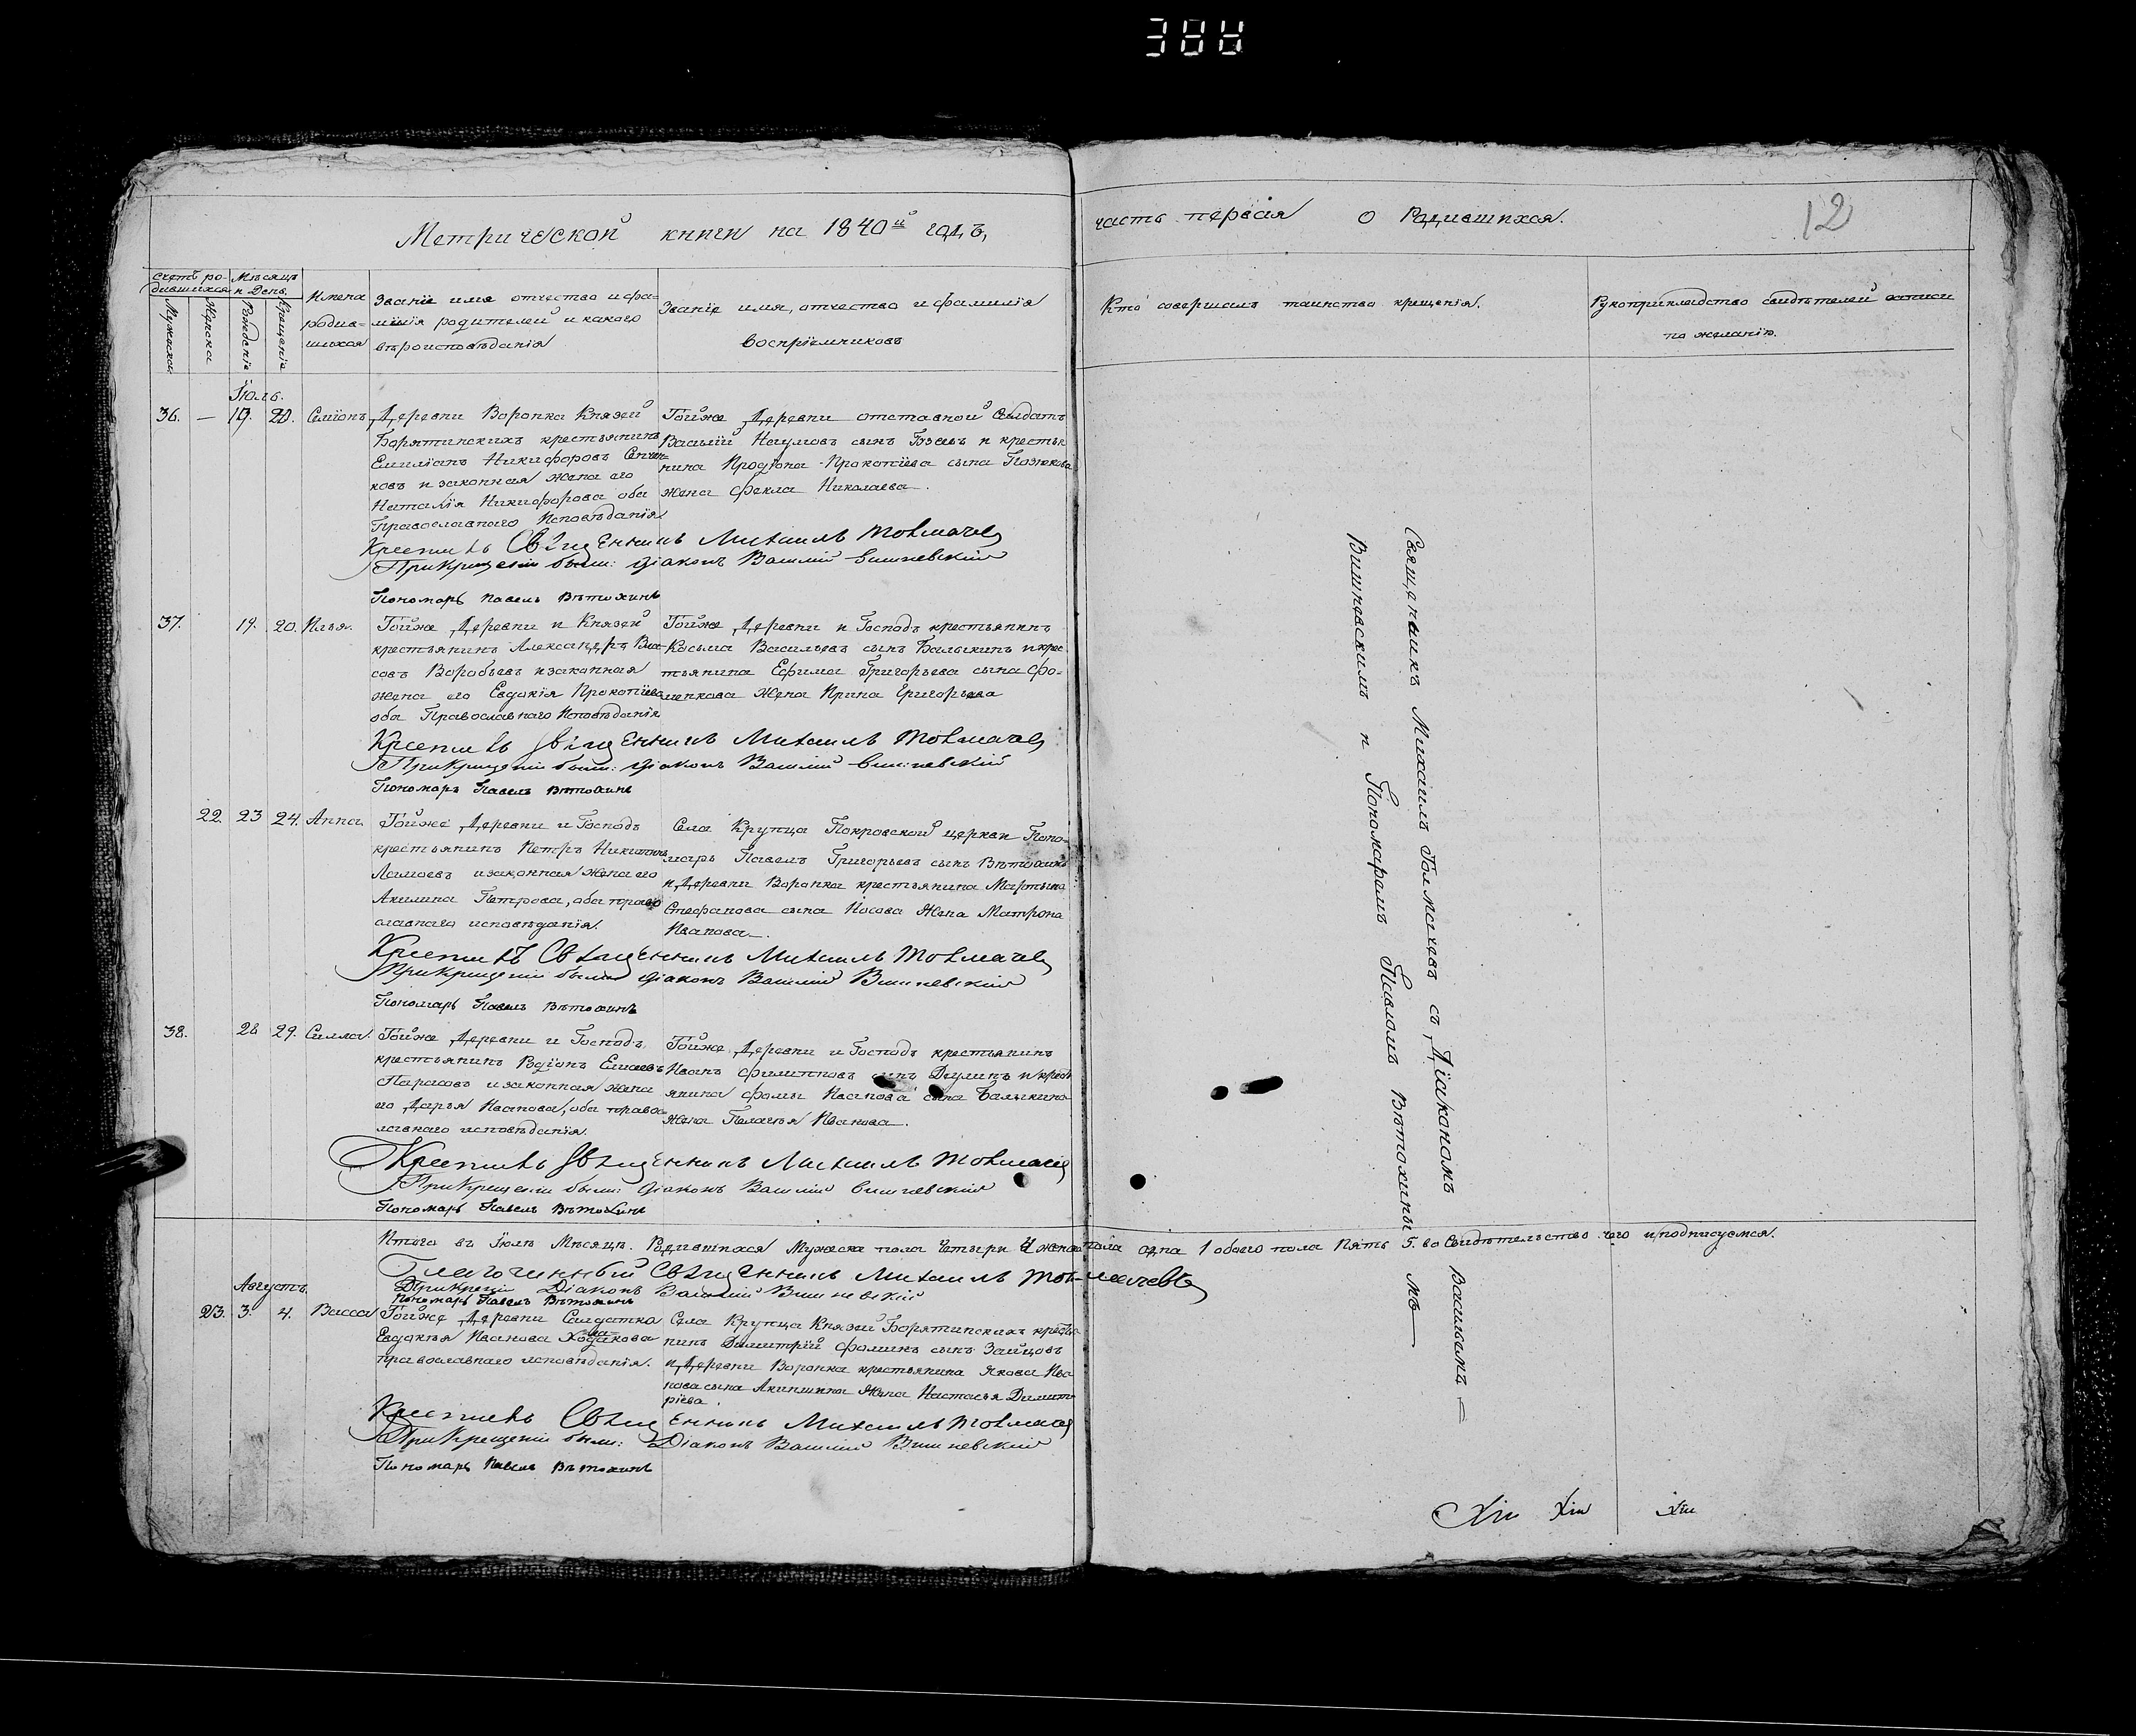 Метрической книги на 1840й годъ,
часть первая о Родившихся.
12
Счетъ ро-
дившихся
Мѣсяцъ
и День.
Мужска
Женска
Рожденіе
Крещеніе
Имена
родив-
шихся
Званіе имя отчество и фа-
милія родителей и какого
вѣроисповѣданія
Званіе имя, отчество и фамилія
воспріемниковъ
Кто совершалъ таинство крещенія.
Рукоприкладство свидѣтелей записи
по желанію.
Іюль.
36. — 19. 20. Симіонъ
Деревни Воронка Князей
Борятинскихъ крестьянинъ
Емиліанъ Никифоровъ
ковъ и законная жена его
Наталія Никифорова оба
Православнаго Исповѣданія
Тойже Деревни отставной Салдатъ
Василій Наумовъ сынъ и крестья
нина Иродіона Прокопіева сына
жена Фекла Николаева.
Крестилъ Священникъ Михаилъ Толмачев
При Крещеніи были: Діаконъ Василій Вишневскій
Пономарь Павелъ Вѣтохинъ
37. 19. 20. Илья.
Тойже Деревни и Князей
крестьянинъ Александръ Вла-
совъ Воробьевъ и законная
жена его Евдокія Прокопіева
оба Православнаго Исповѣданія
Тойже Деревни и Господъ крестьянинъ
Козьма Васильевъ сынъ Балыкинъ и крес
тьянина Ефима Григорьева сына Фо-
менкова Жена Ирина Григорьева
Крестилъ Священникъ Михаилъ Толмачев
При Крещеніи были: Діаконъ Василій Вишневскій
Пономарь Павелъ Вѣтохинъ
22. 23 24. Анна
Тойже Деревни и Господъ
крестьянинъ Петръ Никитинъ
и законная жена его
Акилина Петрова, оба право
славнаго исповѣданія.
Села Крупца Покровской церкви Поно-
марь Павелъ Григорьевъ сынъ Вѣтохинъ
и Деревни Воронка крестьянина Мартына
Стефанова сына Носова Жена Матрона
Иванова.
Крестилъ Священникъ Михаилъ Толмачев
При Крещеніи были Діаконъ Василій Вишневскій
Пономарь Павелъ Вѣтохинъ
38. 28 29. Силла.
Тойже Деревни и Господъ
крестьянинъ Родіонъ Елисеевъ
Тарасовъ и законная жена
его Дарья Иванова, оба правос
лавнаго исповѣданія.
Тойже Деревни и Господъ крестьянинъ
Иванъ Филипповъ сынъ и крест
янина Фомы Иванова сына Балыкина
Жена Пелагья Иванова.
Крестилъ Священникъ Михаилъ Толмачев
При Крещеніи были: Діаконъ Василій Вишневскій
Пономарь Павелъ Вѣтохинъ
Итого въ Іюлѣ Мѣсяцѣ. Родившихся Мужеска пола Четыри 4 женска пола одна 1 обоего пола Пять 5. во Свидѣтельство чего и подписуемся.
Благочинный Священникъ Михаилъ Толмачевъ
Діаконъ Василій Вишневскій
Пономарь Павелъ Вѣтохинъ
Августъ.
23. 3. 4. Васса
Тойже Деревни Салдатка
Евдокья Иванова
православнаго исповѣданія.
Села Крупца Князей Борятинскихъ кресть
нинъ Димитрій Фоминъ сынъ Зайцовъ
и Деревни Воронка крестьянина Якова Ива
нова сына Акиншина Жена Настасья Димит
ріева.
Крестилъ Священникъ Михаилъ Толмачев
При Крещеніи были: Діаконъ Василій Вишневскій
Пономарь Павелъ Вѣтохинъ
Священникъ Михаилъ Толмачевъ съ Діакономъ Васильемъ
Вишневскимъ и Пономаремъ Павломъ Вѣтохинымъ